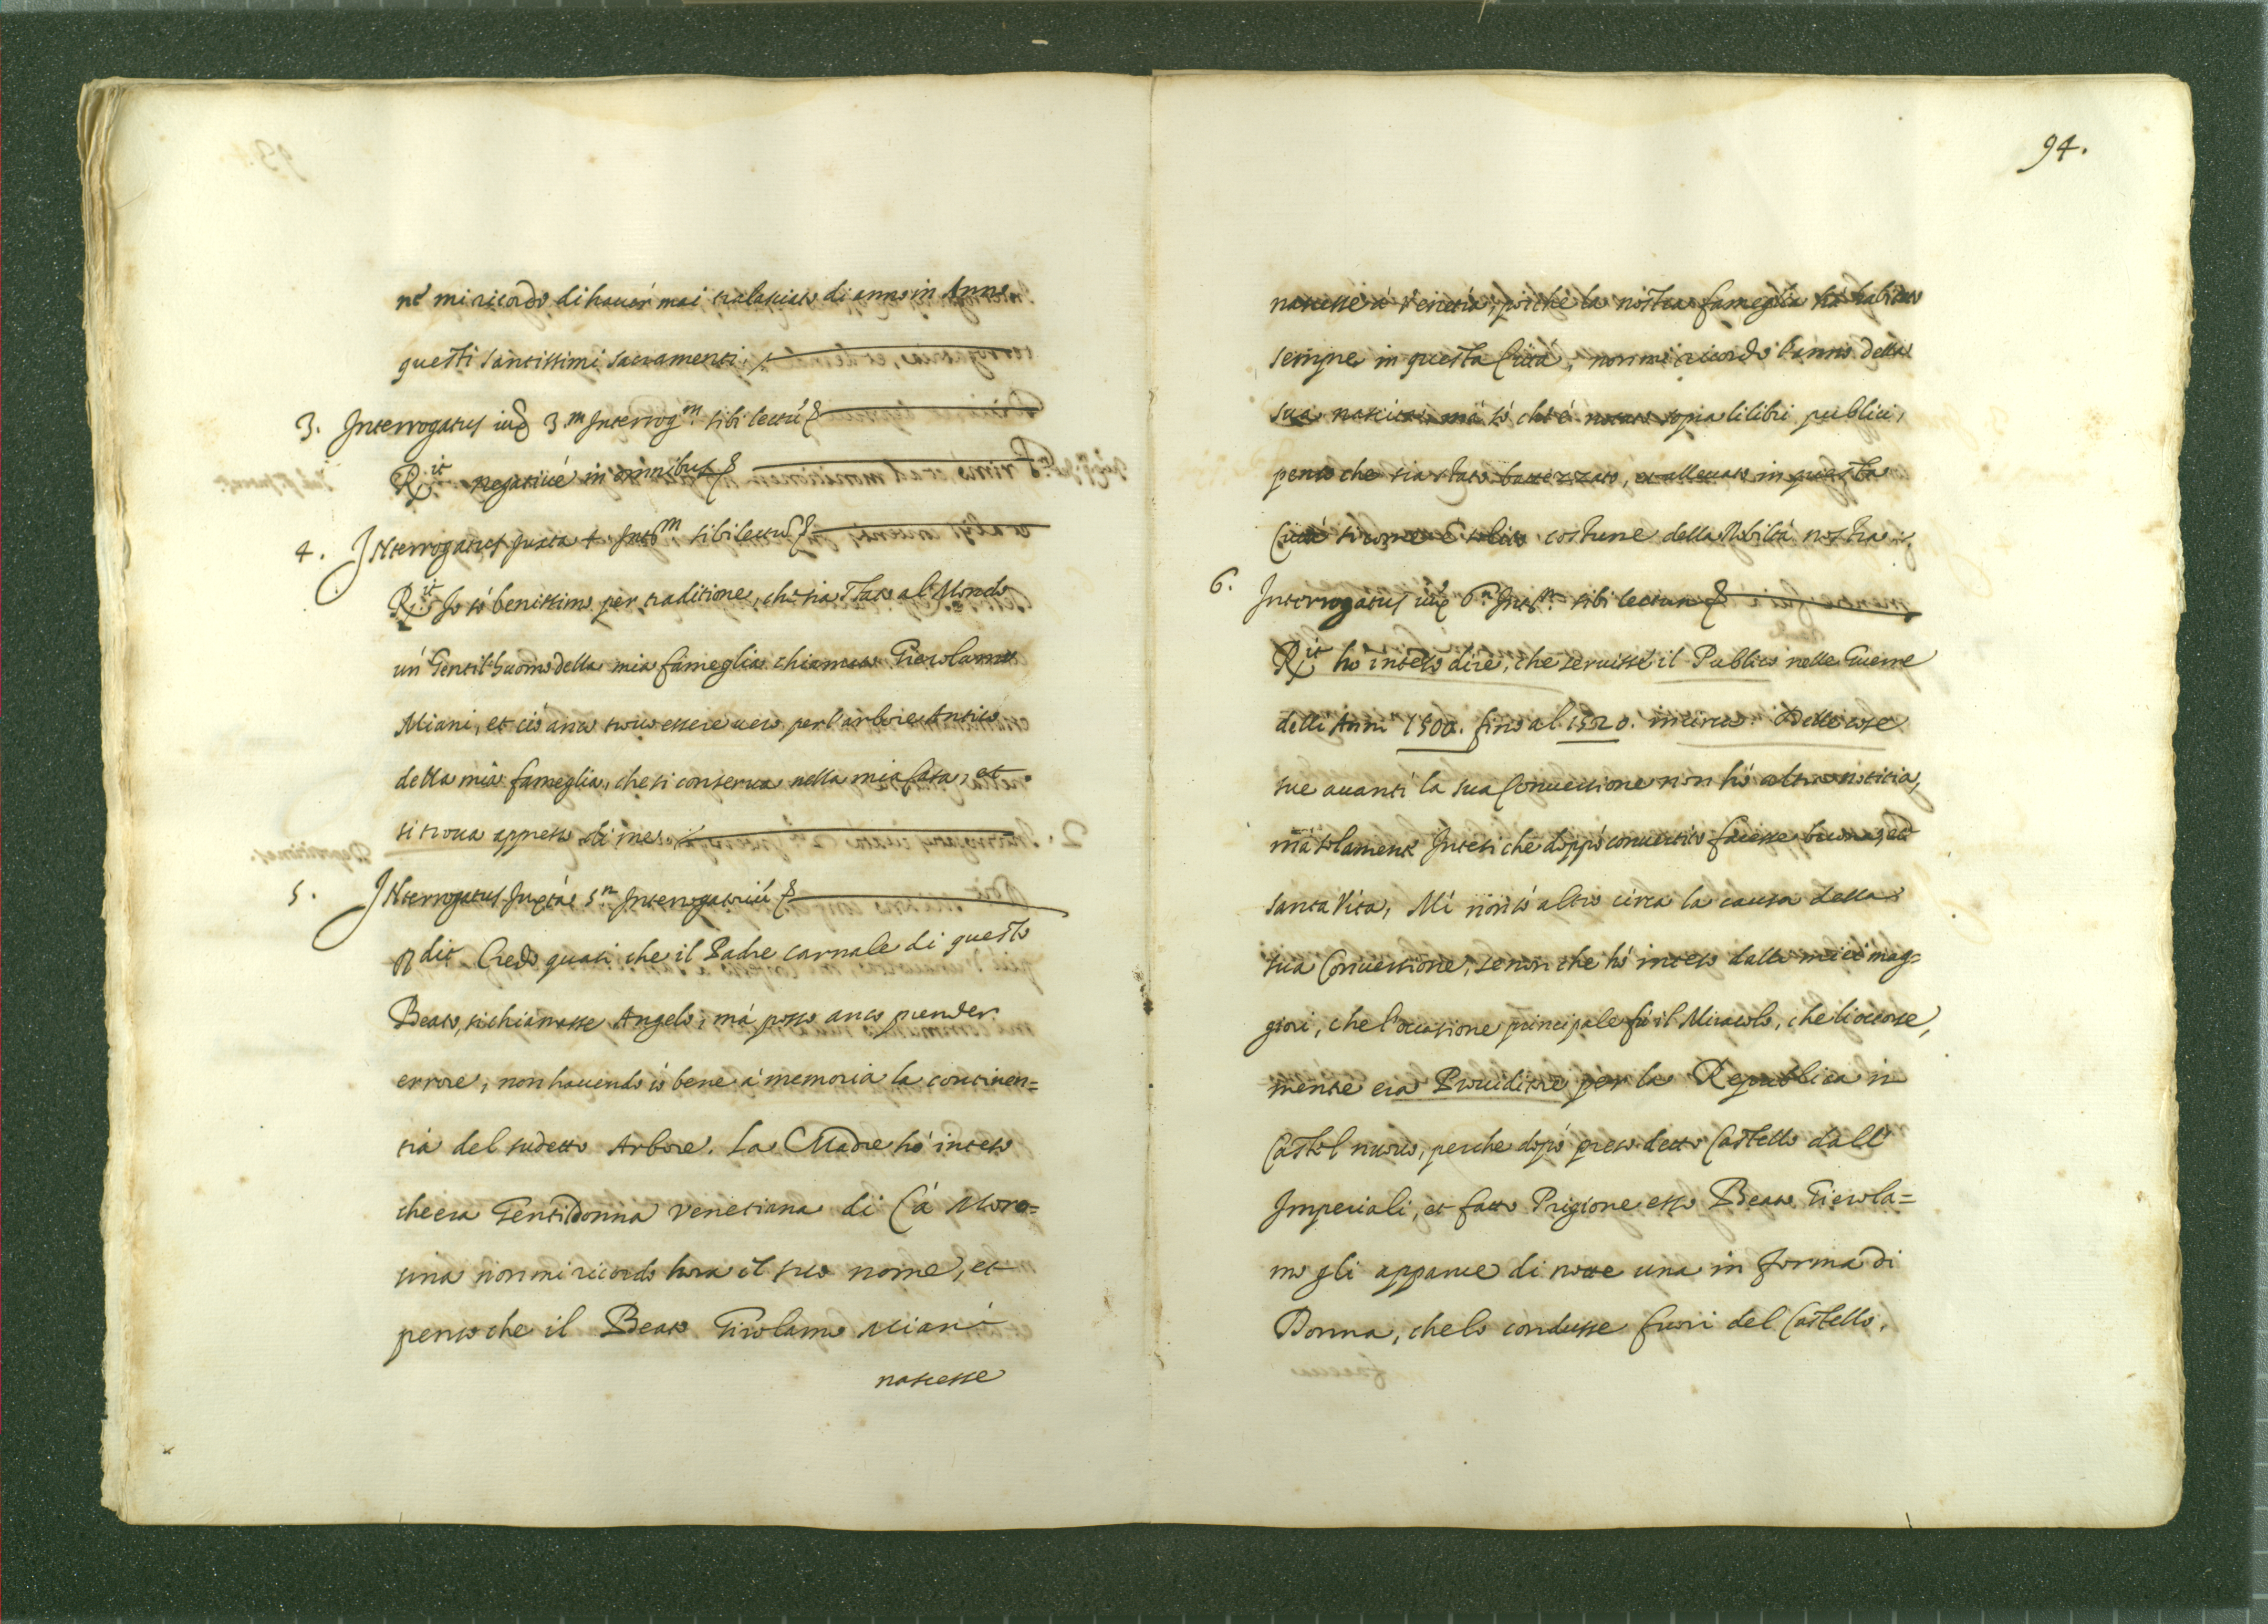 né mi ricordo di hauer mai tralasciato di anno in Anno
questi santissimi sacramenti.
3. Interrogatus iux 3.m Interrog.m sibi lectũ &
R.it negatiué in omnibus &
4. INterrogatus juxta 4 Int.m sibi lectũ &
R.it Io só benissimo per traditione, che sia stato al Mondo
un' Gentil'huomo della mia fameglia chiamato Gierolamo
Miani, et ció anco trouo essere uero per l'arbore Antico
della mia fameglia, che si conserua nella mia Casa, et
si troua appresso di me.
5. INterrogatus Juxtà 5.m Interrogatoriũ &
Rdit Credo quasi che il Padre carnale di questo
Beato, si chiamasse Angelo, má posso anco prender
errore, non hauendo io bene á memoria la continen=
tia del sudetto Arbore. La Madre hó inteso
che era Gentildonna Venetiana di Cá Moro=
sina non mi ricordo hora il suo nome, et
penso che il Beato Girolamo Miani
nascesse
94.
nascesse á Venetia, poiché la nostra fameglia há habitato
sempre in questa Cittá, non mi ricordo l'anno della
sua nascita, má só che é notato sopra li libri publici,
penso che sia stato battezzato, et alleuato in questa
Cittá sicome é solito costume della Nobiltá nostra.
6. Interrogatus iux 6.m Int.m sibi lectum &
R.it hó inteso dire, che seruisse il Publico nelle Guerre
delli Anni 1500. fino al 1520. incirca. Delle cose
sue auanti la sua Conuersione non hó altra notitia,
má solamente Intesi che doppó conuertito facesse buona, et
santa Vita, Mi non só altro circa la causa della
sua Conuersione, se non che hó inteso dalli miei mag=
giori, che l'occasione principale fù il Miracolo, che li occorse,
mentre era Proueditore per la Republica in
Castel nuouo, perche dopó preso detto Castello dall'
Imperiali, et fatto Prigione esso Beato Gierola=
mo gli apparue di notte una in forma di
Donna, che lo condusse fuori del Castello,